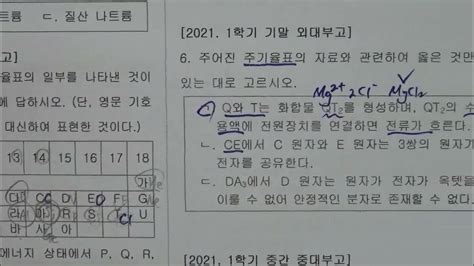 ㄷ. 질산 나트륨
고]
율표의 일부를 나타낸 것이
에 답하시오. (단, 영문 기호
대신하여 표현한 것이다.)
13 14 15 16 17 18
가
다 C D E F G
라 마 R S T U
바 사 아
에너지 상태에서 P, Q, R,
[2021. 1학기 기말 외대부고]
6. 주어진 주기율표의 자료와 관련하여 옳은 것만
있는 대로 고르시오.
Mg²⁺ 2Cl⁻ MgCl₂
Q와 T는 화합물 QT₂를 형성하며, QT₂의 수
용액에 전원장치를 연결하면 전류가 흐른다.
ㄴ. CE에서 C 원자와 E 원자는 3쌍의 원자가
전자를 공유한다.
ㄷ. DA₃에서 D 원자는 원자가 전자가 옥텟을
이룰 수 없어 안정적인 분자로 존재할 수 없다.
[2021. 1학기 중간 중대부고]